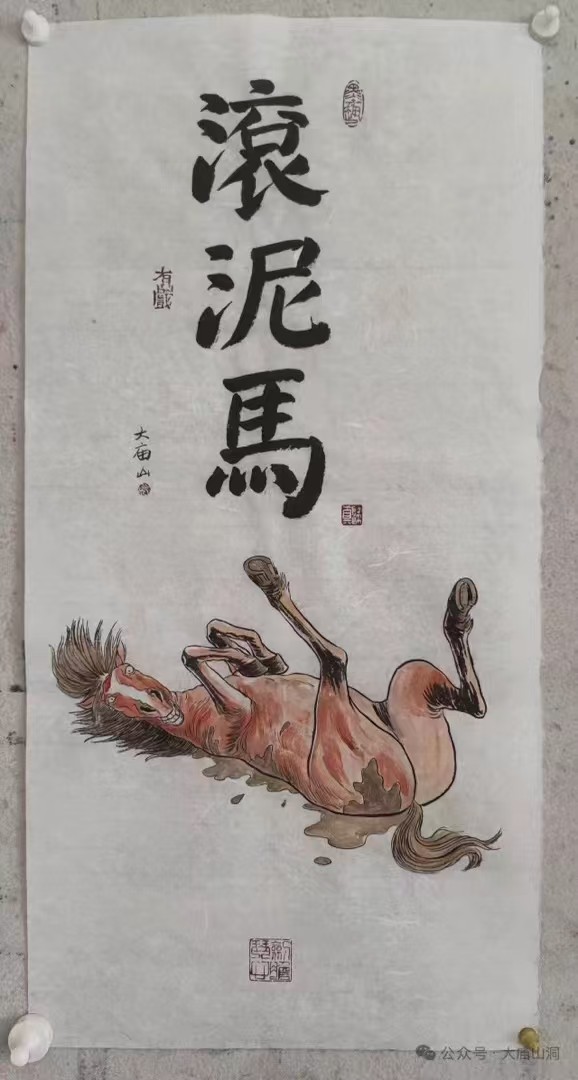 滾泥馬
有戲
大庙山
公众号·大庙山洞